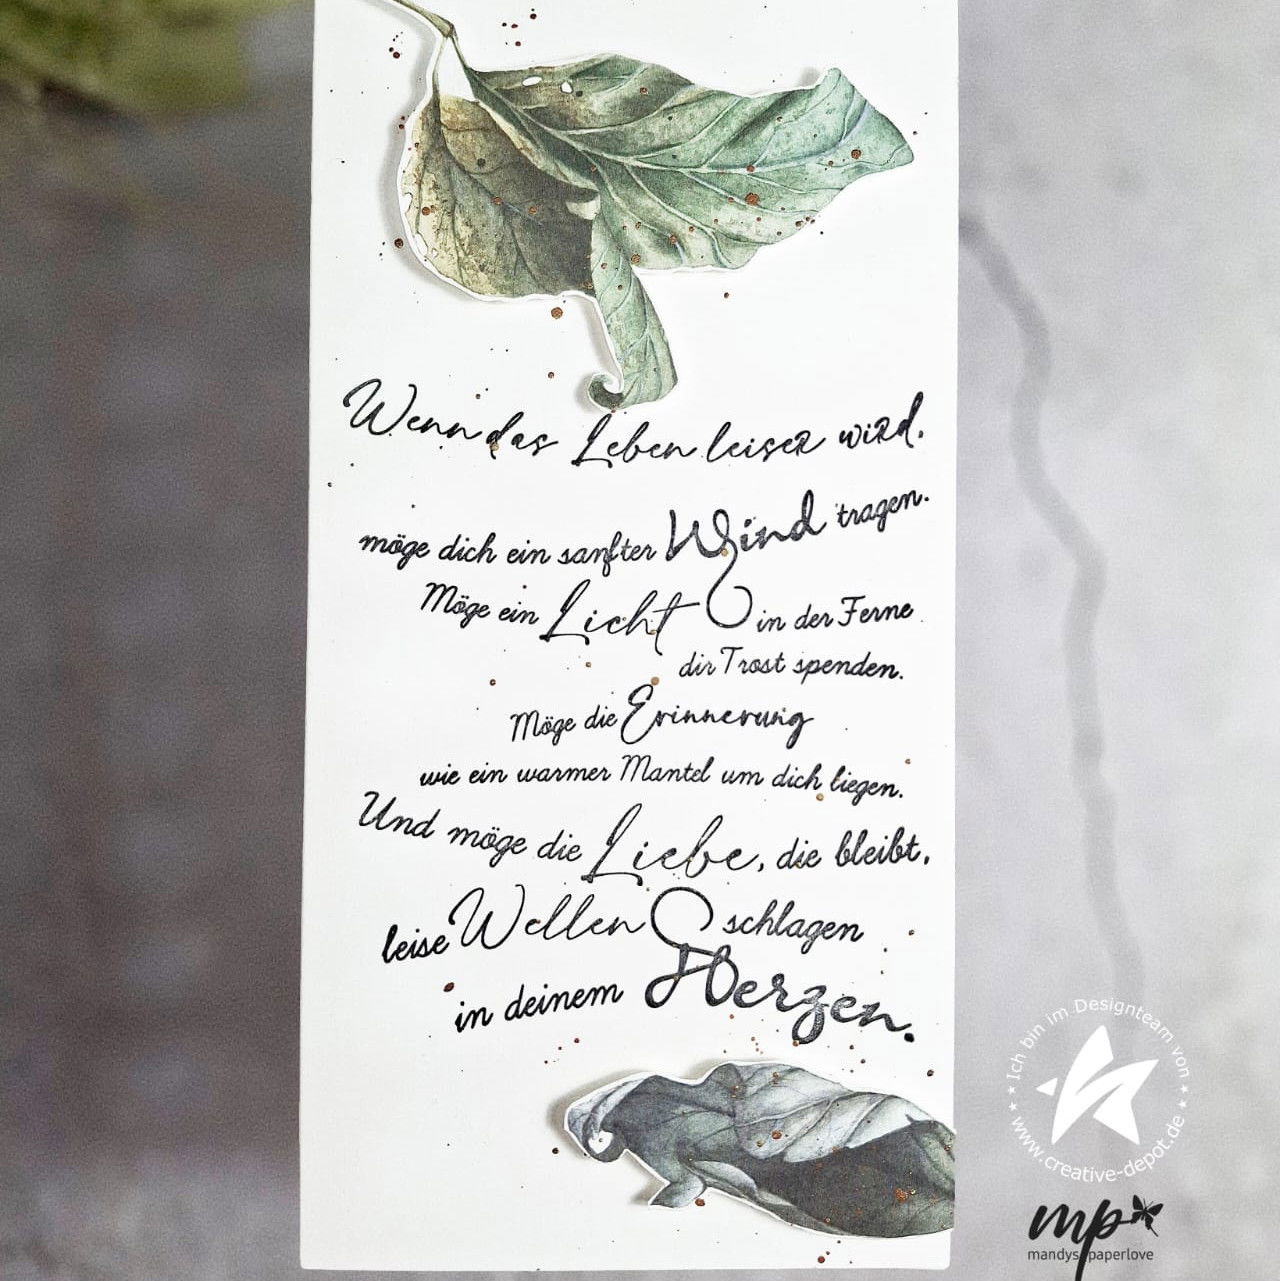 Wenn das Leben leiser wird,
möge dich ein sanfter Wind tragen.
Möge ein Licht in der Ferne
dir Trost spenden.
Möge die Erinnerung
wie ein warmer Mantel um dich liegen.
Und möge die Liebe, die bleibt,
leise Wellen schlagen
in deinem Herzen.
Ich bin im Designteam von
www.creative-depot.de
mp
mandys paperlove